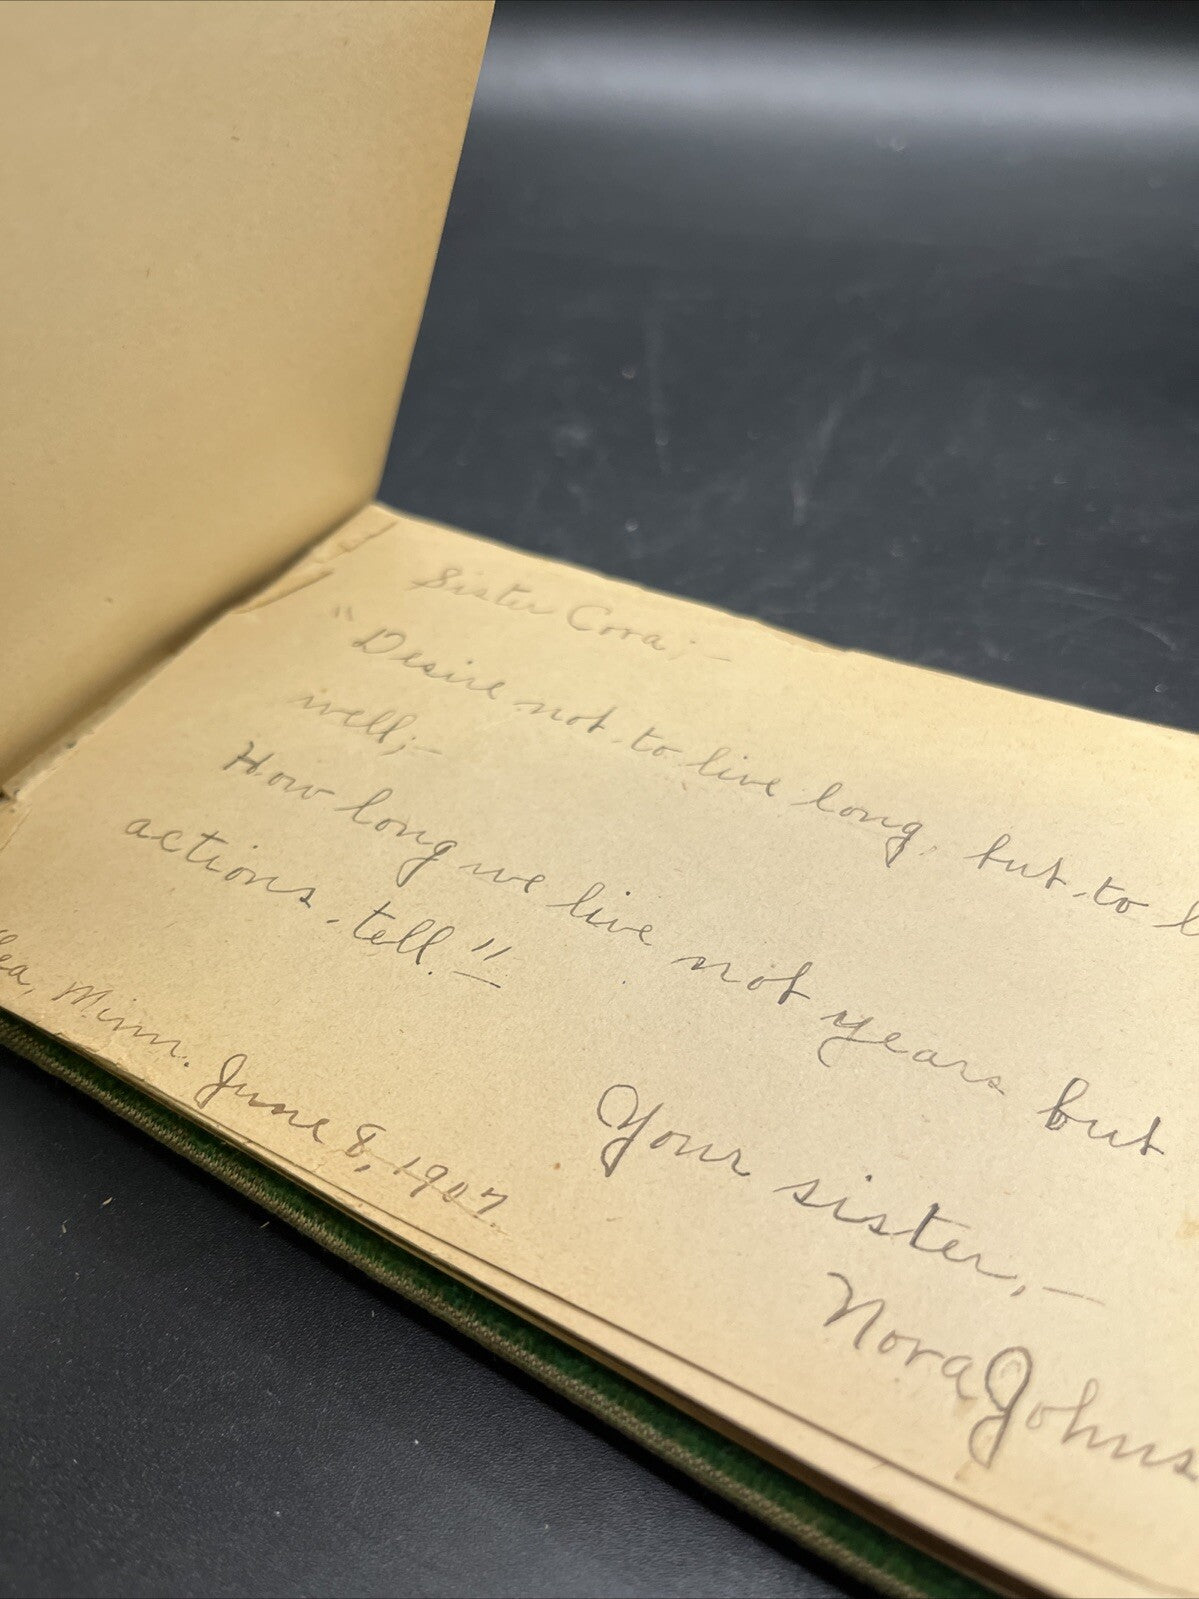 Sister Cora;—
"Desire not to live long, but to l
well;—
How long we live not years but
actions tell."
ea, Minn. June 8, 1907.
Your sister,—
Nora Johns